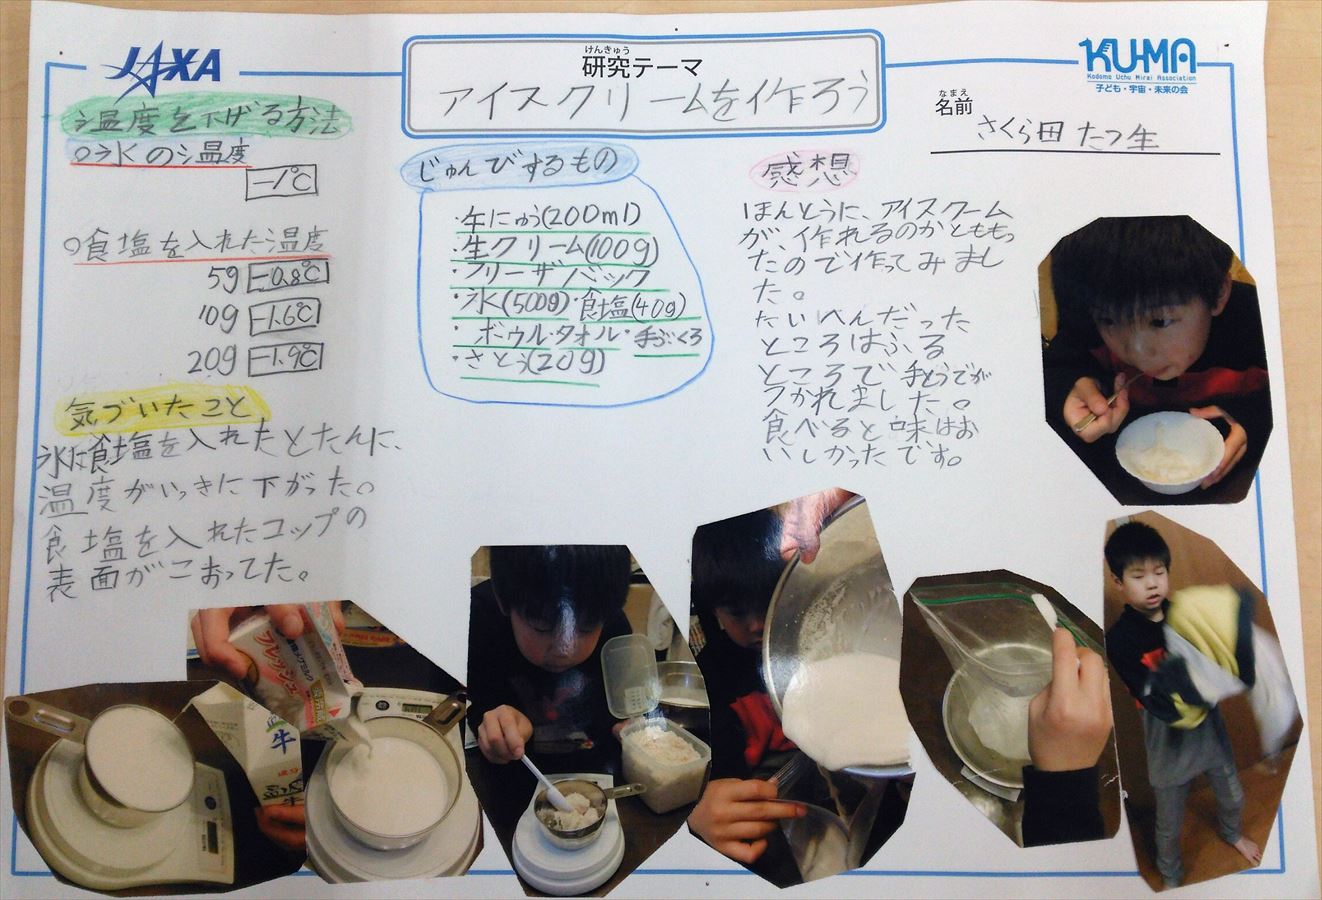 JAXA
けんきゅう
研究テーマ
アイスクリームを作ろう
KU-MA
Kodomo Uchu Mirai Association
子ども・宇宙・未来の会
なまえ
名前
さくら田 たつ生
温度を下げる方法
○氷の温度
-1℃
○食塩を入れた温度
5g -0.8℃
10g -1.6℃
20g -1.9℃
気づいたこと
氷に食塩を入れたとたんに、
温度がいっきに下がった。
食塩を入れたコップの
表面がこおってた。
じゅんびするもの
・牛にゅう(200ml)
・生クリーム(100g)
・フリーザバック
・氷(500g)・食塩(40g)
・ボウル・タオル・手ぶくろ
・さとう(20g)
感想
ほんとうに、アイスクーム
が、作れるのかとももっ
たので作ってみまし
た。
たいへんだった
ところはふる
ところで手とうでが
つかれました。
食べると味はお
いしかったです。
フレッシュ
牛